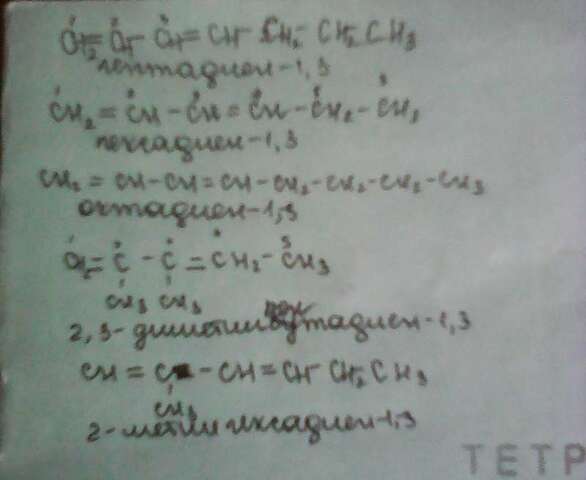 CH₂=CH-CH=CH-CH₂-CH₂-CH₃
гептадиен-1,3
CH₂=CH-CH=CH-CH₂-CH₃
гексадиен-1,3
CH₂=CH-CH=CH-CH₂-CH₂-CH₂-CH₃
октадиен-1,3
CH₂=C-C=CH₂-CH₃
CH₃ CH₃
2,3-диметил пентадиен-1,3
CH=C-CH=CH CH₂ CH₃
CH₃
2-метил гексадиен-1,3
ТЕТР